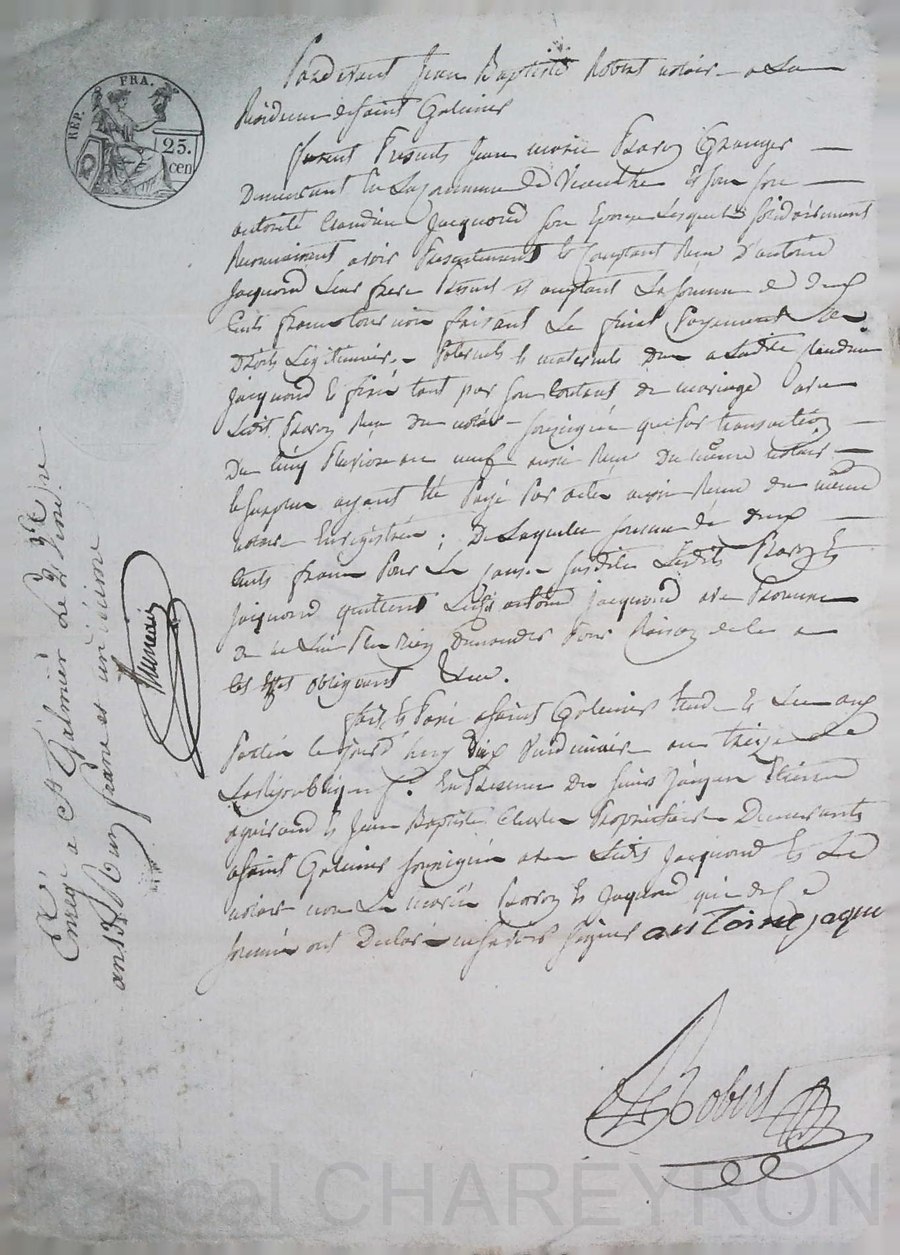 REP. FRA.
25.
cen
Pardevant Jean Baptiste Robert notaire a La
Residence de Saint Galmier
furent Presents Jean marie Granger
Demeurant En La Commune de Et Sous Son
autorité Claudine Jacquond Son Epouse Lesquels Solidairement
Reconnaissent avoir Presentement Et Comptant Recu D'antoine
Jacquond Leur frere Present Et acceptant La Somme de deux
Cents francs tournois faisant Le final Payement des
Droits Legitimaires Paternels Et maternels Dus a Ladite Claudine
Jacquond Et fixés tant par Son Contrat de mariage avec
Ledit Recu Du notaire Soussigné que Par transaction
Du Cinq Pluviose an neuf aussi Recu Du même notaire
Le Surplus ayant été Payé Par actes aussi Recus du même
notaire Enregistrés ; De Laquelle Somme de deux
Cents francs Pour La Cause Susdite Ledit Et
Jacquond quittent Ledit antoine Jacquond avec Promesse
de ne Lui Plus Rien Demander Pour Raison de Ce a
obligeant
fait Et Passé a Saint Galmier Etude Et Lieu aux
Le Jourd'huy Dix Vendemiaire an treize de
La République f. En Presence Du Sieur Jacques Etienne
Et Jean Baptiste Proprietaires Demeurants
a Saint Galmier Soussignés avec Ledit Jacquond Et Le
notaire non Les mariés Et Jacquond qui de Ce
Sommés ont Déclaré ne Savoir Signer antoine jaqu
JBRobert
Enregé a St Galmier Le 21 Vendre
an 13 Recu franc et un decime
Pascal CHAREYRON